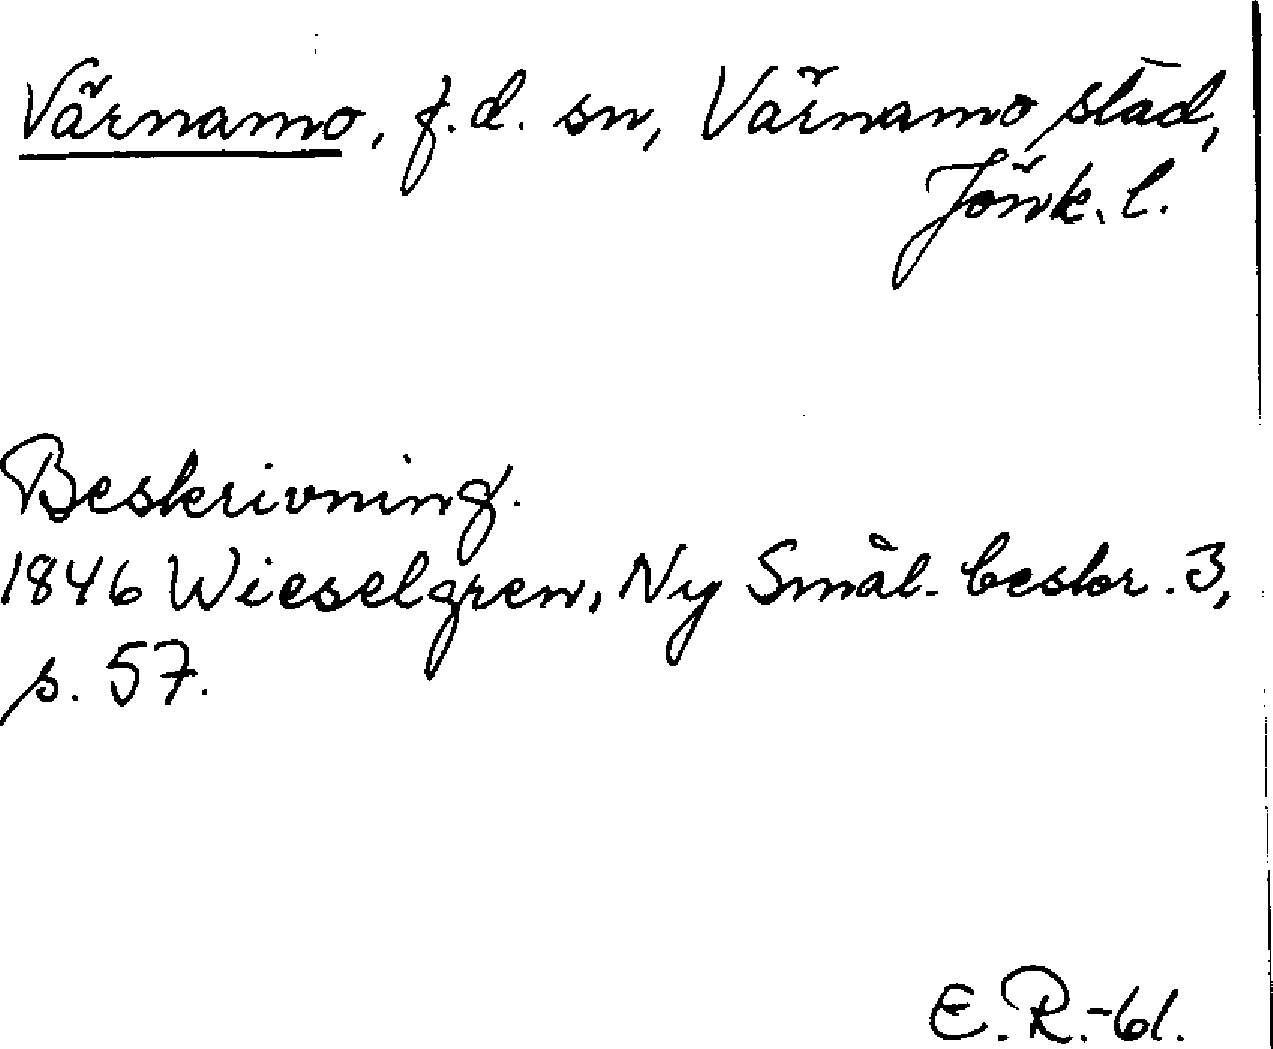 Värnamo, f.d. sn, Värnamo stad,
Jönk. l.
Beskrivning.
1846 Wieselgren, Ny Smål. beskr. 3,
s. 57.
E.R.-61.